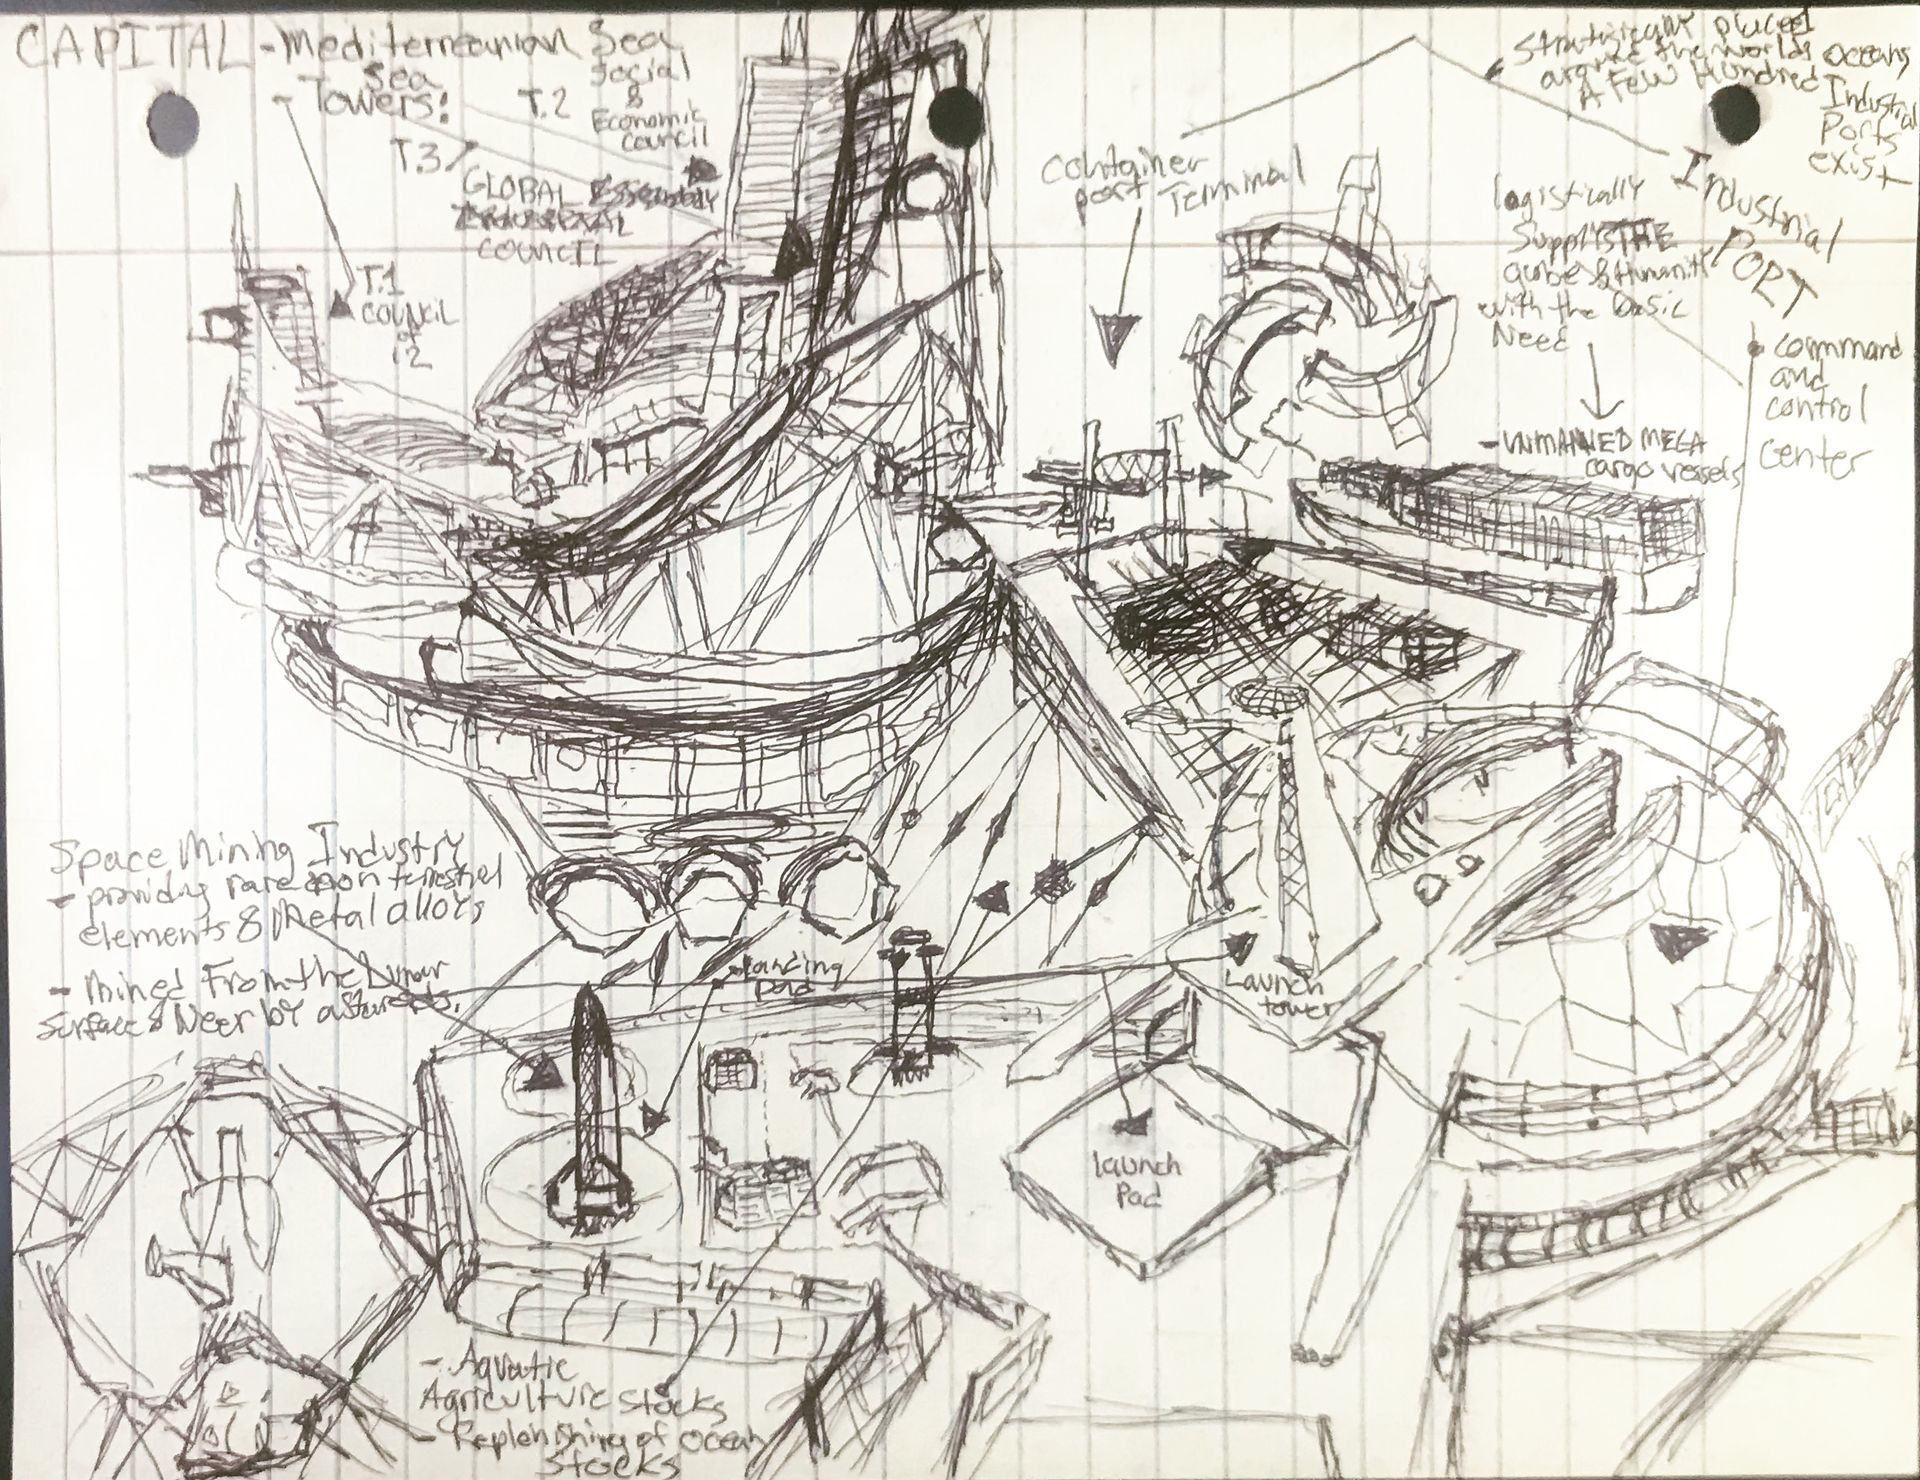 CAPITAL - Mediterreanian Sea
Sea
Towers:
T.2
Social
&
Economic
council
T.3
GLOBAL
COUNCIL
T.1
COUNCIL
of
12
container
port Terminal
Stratigically placed
around the worlds oceans
A Few Hundred
Industrial
Ports
exist
Industrial
PORT
logistically
Supplys THE
Globe & Humanity
with the basic
Need
- UNMANNED MEGA
cargo vessels
command
and
control
center
Space Mining Industry
- providing rare
elements & Metal alloys
- Mined From the Lunar
Surface & Neer by
Landing
pad
Launch
tower
launch
Pad
- Aquatic
Agriculture Stocks
- Replenishing of ocean
Stocks